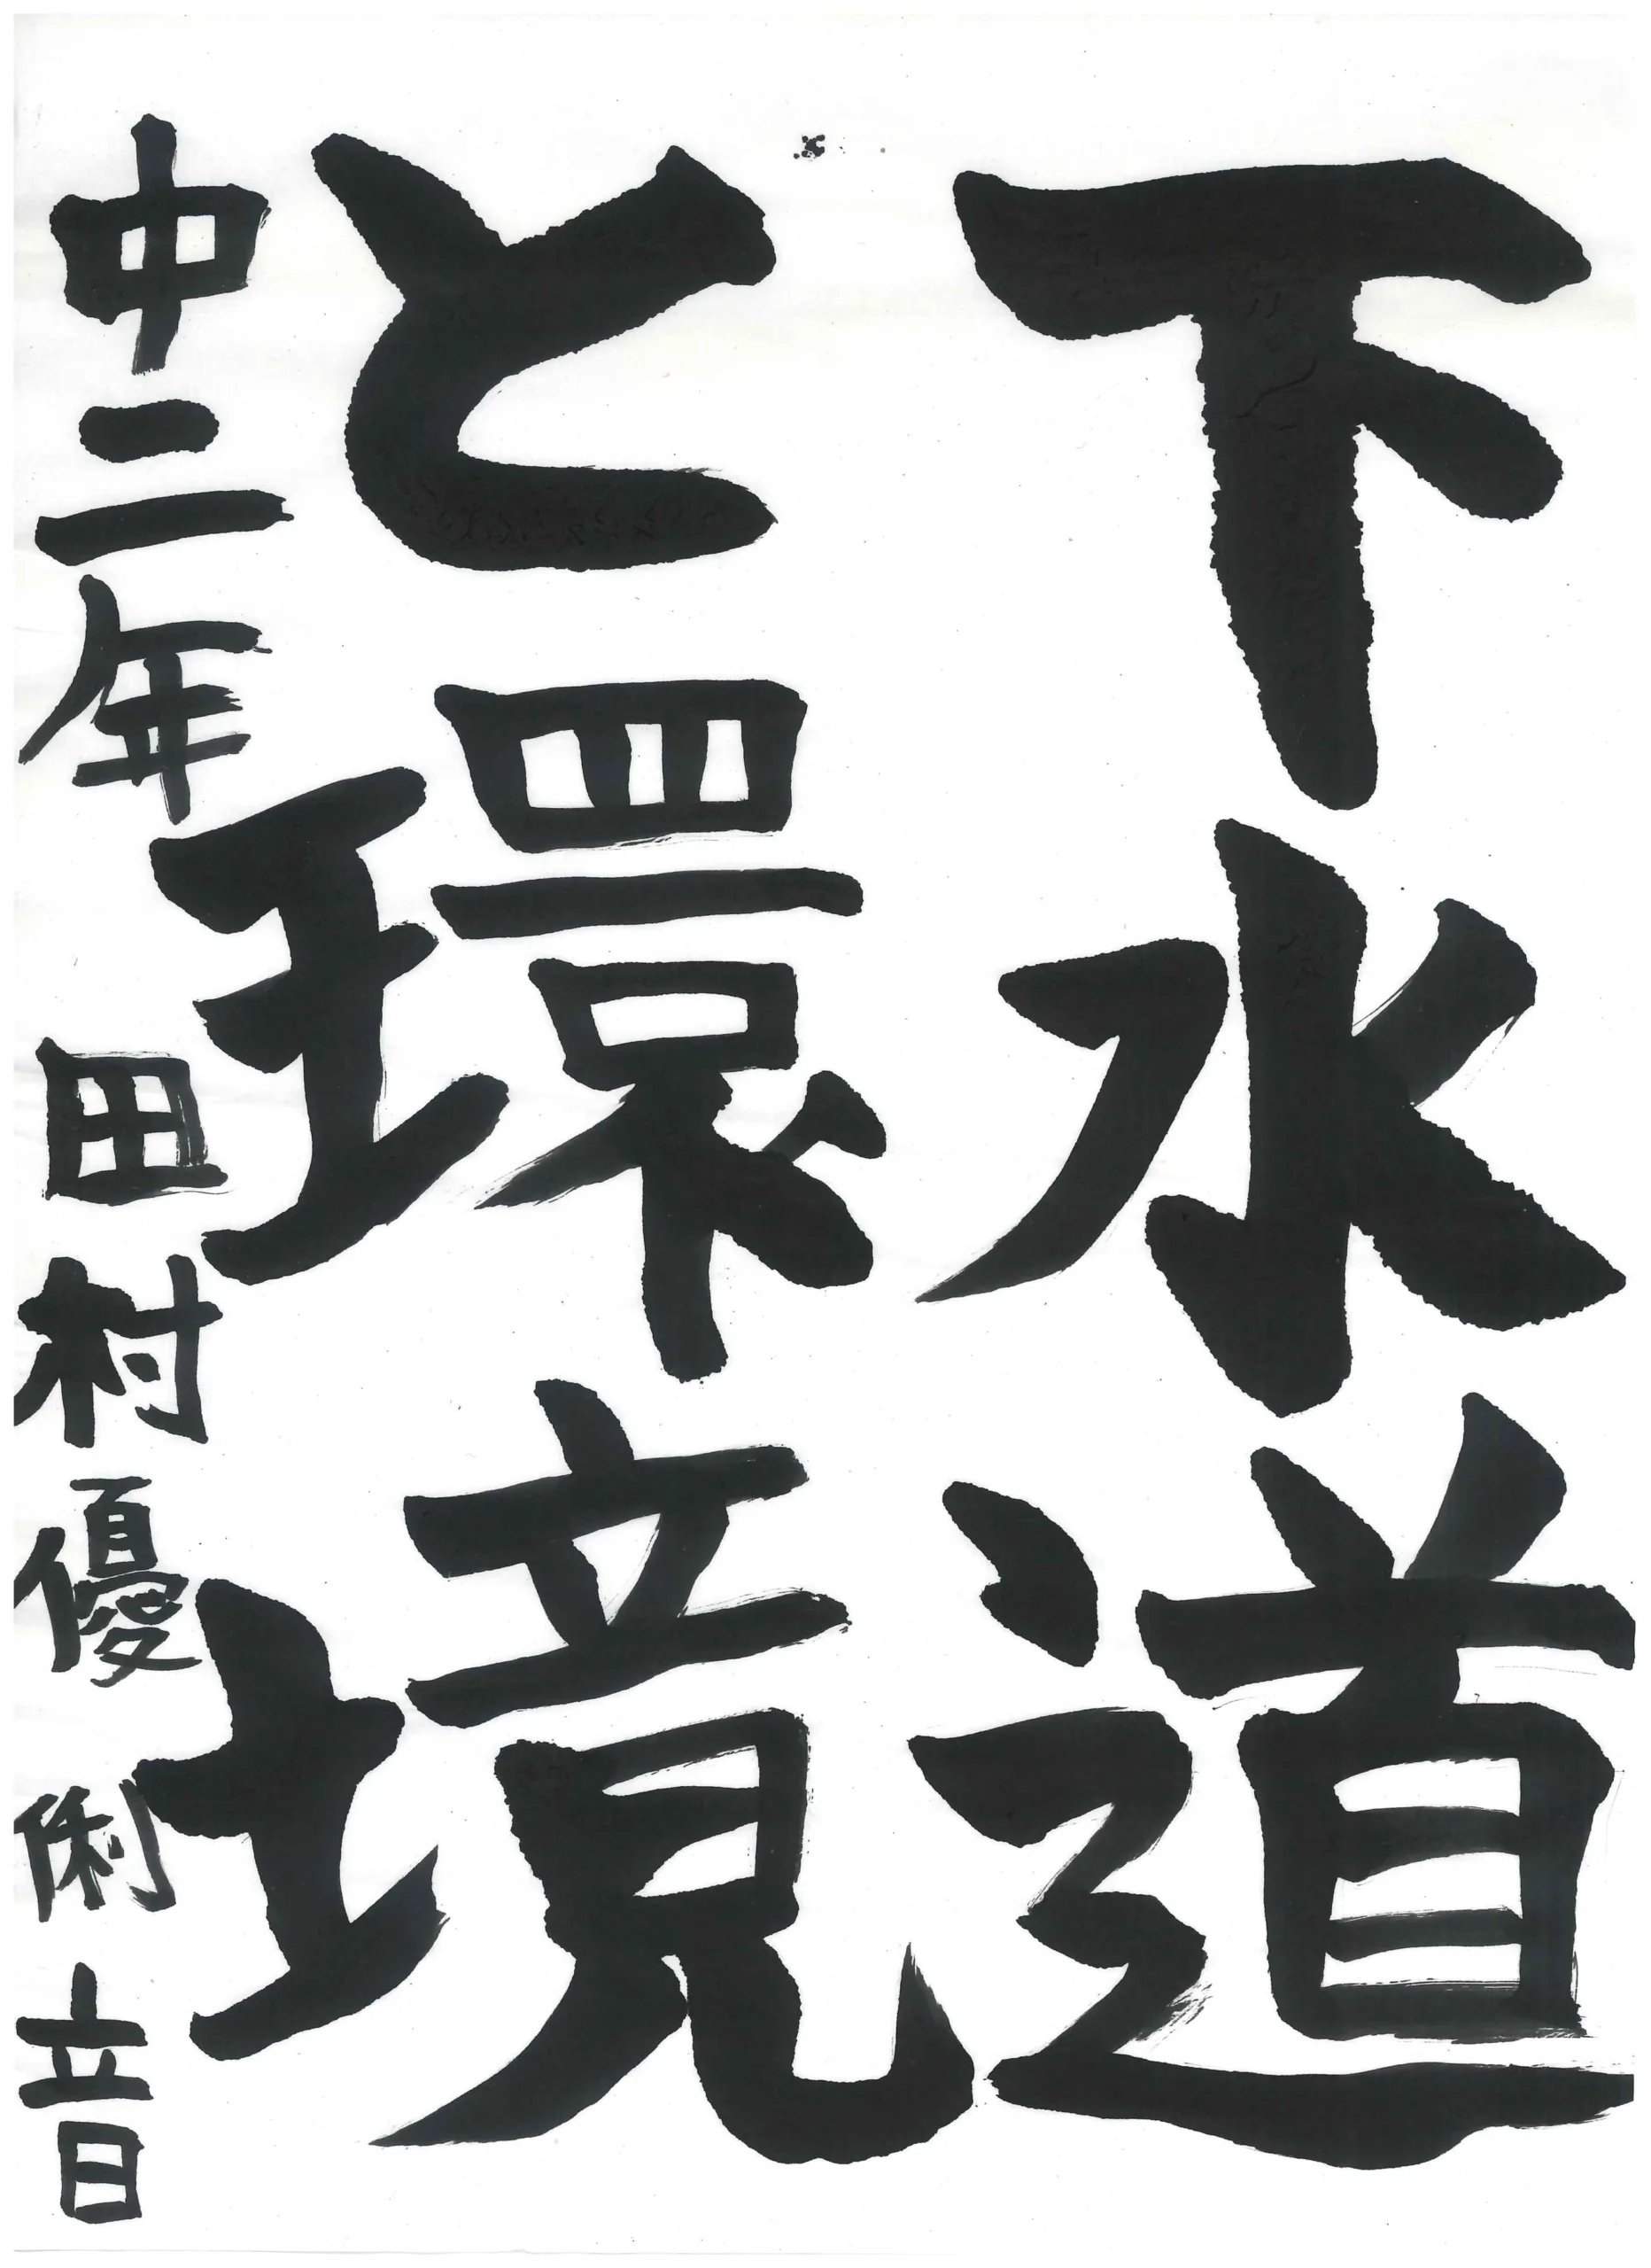 下水道
と環境
中二年 田村優俐音